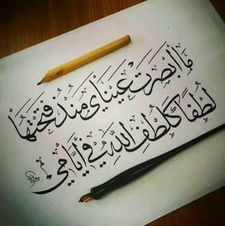 مَا أَبْصَرَتْ عَيْنَايَ مُنْذُ فَتَحْتُهَا
لُطْفًا كَلُطْفِ اللَّهِ فِي أَيَّامِي